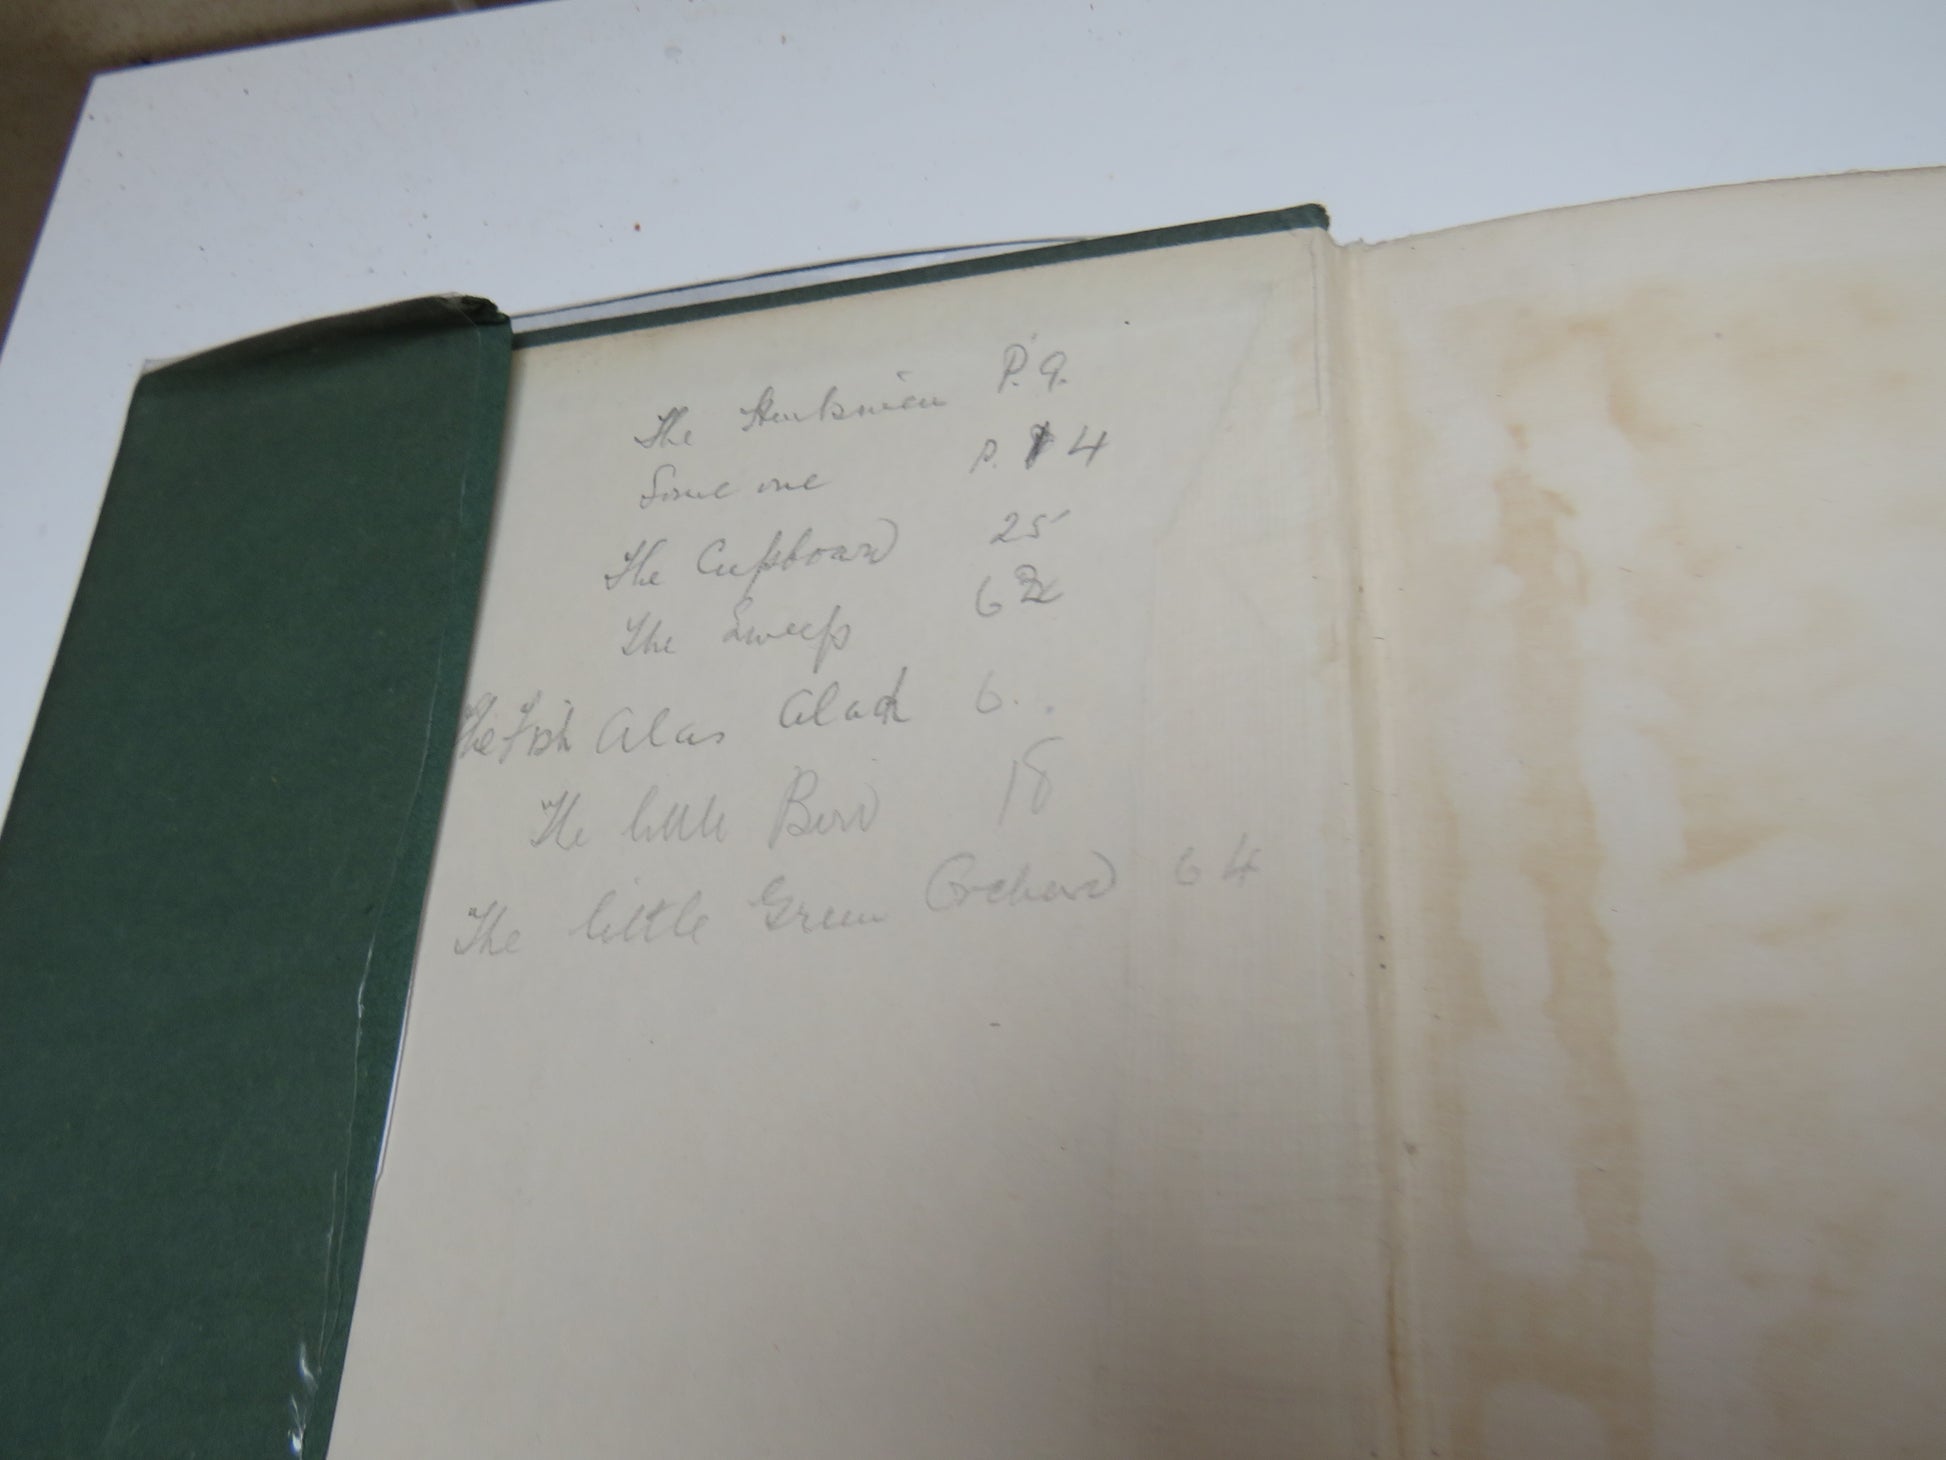 The Huntsmen P. 9.
Some one P. 14
The Cupboard 25
The Sweep 62
The Fish Alas Alack 6..
The little Bird 18
The little Green Orchard 64